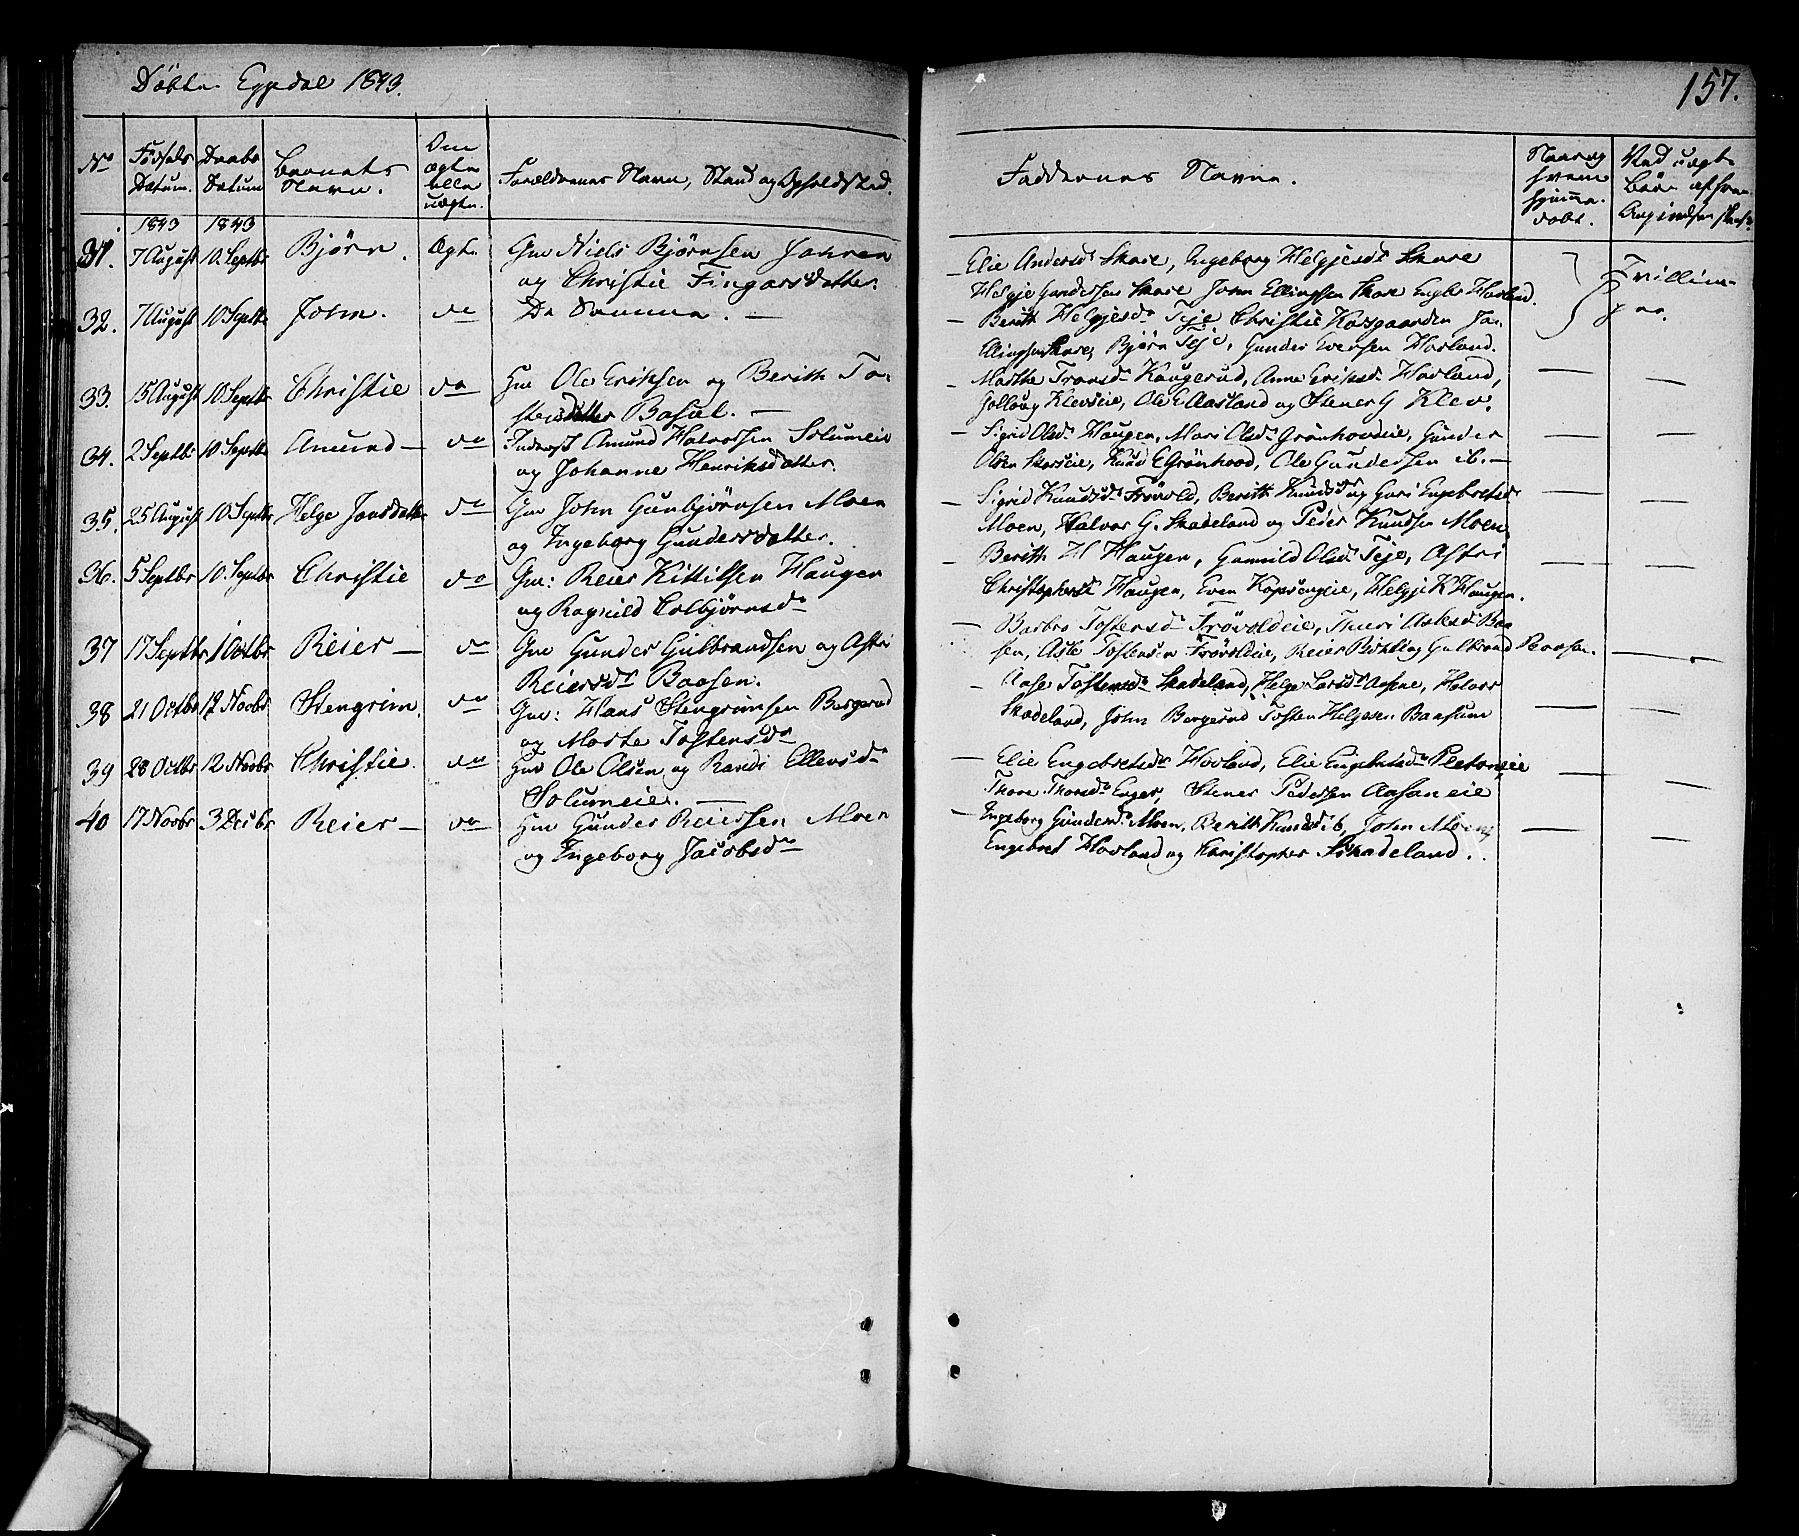 Döbte Eggedal 1843.
157.
No
Födsels Datum.
Daabs Datum
Barnets Navn.
Om Ægte eller uægte.
Forældrenes Navn, Stand og Opholdsted.
Faddernes Navne.
Naar og hvem hjemmedöbt.
Ved uægte Börn
1843 1843
31. 7 August 10. Septbr Bjørn. Ægte Gm Niels Bjørnsen Jahren
og Christie Fingarsdatter.
Elie Andersdr Skare, Ingeborg Helgjesdr Skare
Helgje Gundersen Skare John Ellingsen Skare Engbr Hovland.
Tvillinger.
32. 7 August 10 Septbr John. do De Samme. —
— Berith Helgjesdr Teje, Christie Korsgaarden
Ellingsen Skare, Bjørn Teje, Gunder Iversen Hovland.
33. 15 August 10 Septbr Christie do Hm Ole Eriksen og Berith To-
stensdatter Basiel. —
— Marthe Tronsdr Kaugerud, Anne Eriksdr Hovland, — —
Golloug Klevseie, Ole E Aasland og Stener G Klev.
34. 2 Septbr 10 Septbr Amund — do Inderst Amund Halvorsen Solumeie
og Johanne Henriksdatter.
— Sigrid Olsdr Haugen, Mari Olsdr Grönhovdeie, Gunder — —
Olsen Skarseie, Knud E Grönhovd, Ole Gundersen ib. —
35. 25 August 10 Septbr Helge Jonsdatter do Gm John Gunbjörnsen Moen
og Ingeborg Gundersdatter.
— Sigrid Knudsdr Frövold, Berith Knudsdr og Guri Engebretsdr — —
Moen, Halvor G. Skadeland og Peder Knudsen Moen
36. 5 Septbr 10. Septbr Christie do Gm: Reier Kittilsen Haugen
og Ragnild Colbjörnsdr
— Berith H Haugen, Gunnild Olsdr Teje, Astri — —
Christophersdr Haugen, Even Kopsengeie, Helgje K Haugen.
37 17 Septbr 1 Octbr Reier — do Gm Gunder Gulbrandsen og Astri
Reiersdr Baasen.
— Barbro Tostensdr Frövoldeie, Thuri Aslesdr Baa
sen, Asle Tostensen Frövoldeie, Reier og Gulbrand Baasen. —
38 21 Octbr 12 Novbr Stengrim. do Gm: Hans Stengrimsen Bergerud
og Marte Tostensdr
— Aase Tostensdr Skadeland, Helge Larsdr Halvor — —
Skadeland, John Bergerud Tosten Helgesen Baasum
39 28 Octbr 12 Novbr Christie. do Hm Ole Olsen og Randi Ellevsdr
Solumeie. —
— Elie Engebretsdr Hovland, Elie Engebretsdr — —
Thore Thorsdr Enger, Stener Pedersen Aasaneie
40 17 Novbr 3 Decbr Reier — do Hm Gunder Reiersen Moen
og Ingeborg Jacobsdr
— Ingeborg Gundersdr Moen, Berith Knudsdr ib, John Moen, — —
Engebret Hovland og Christopher Skadeland.